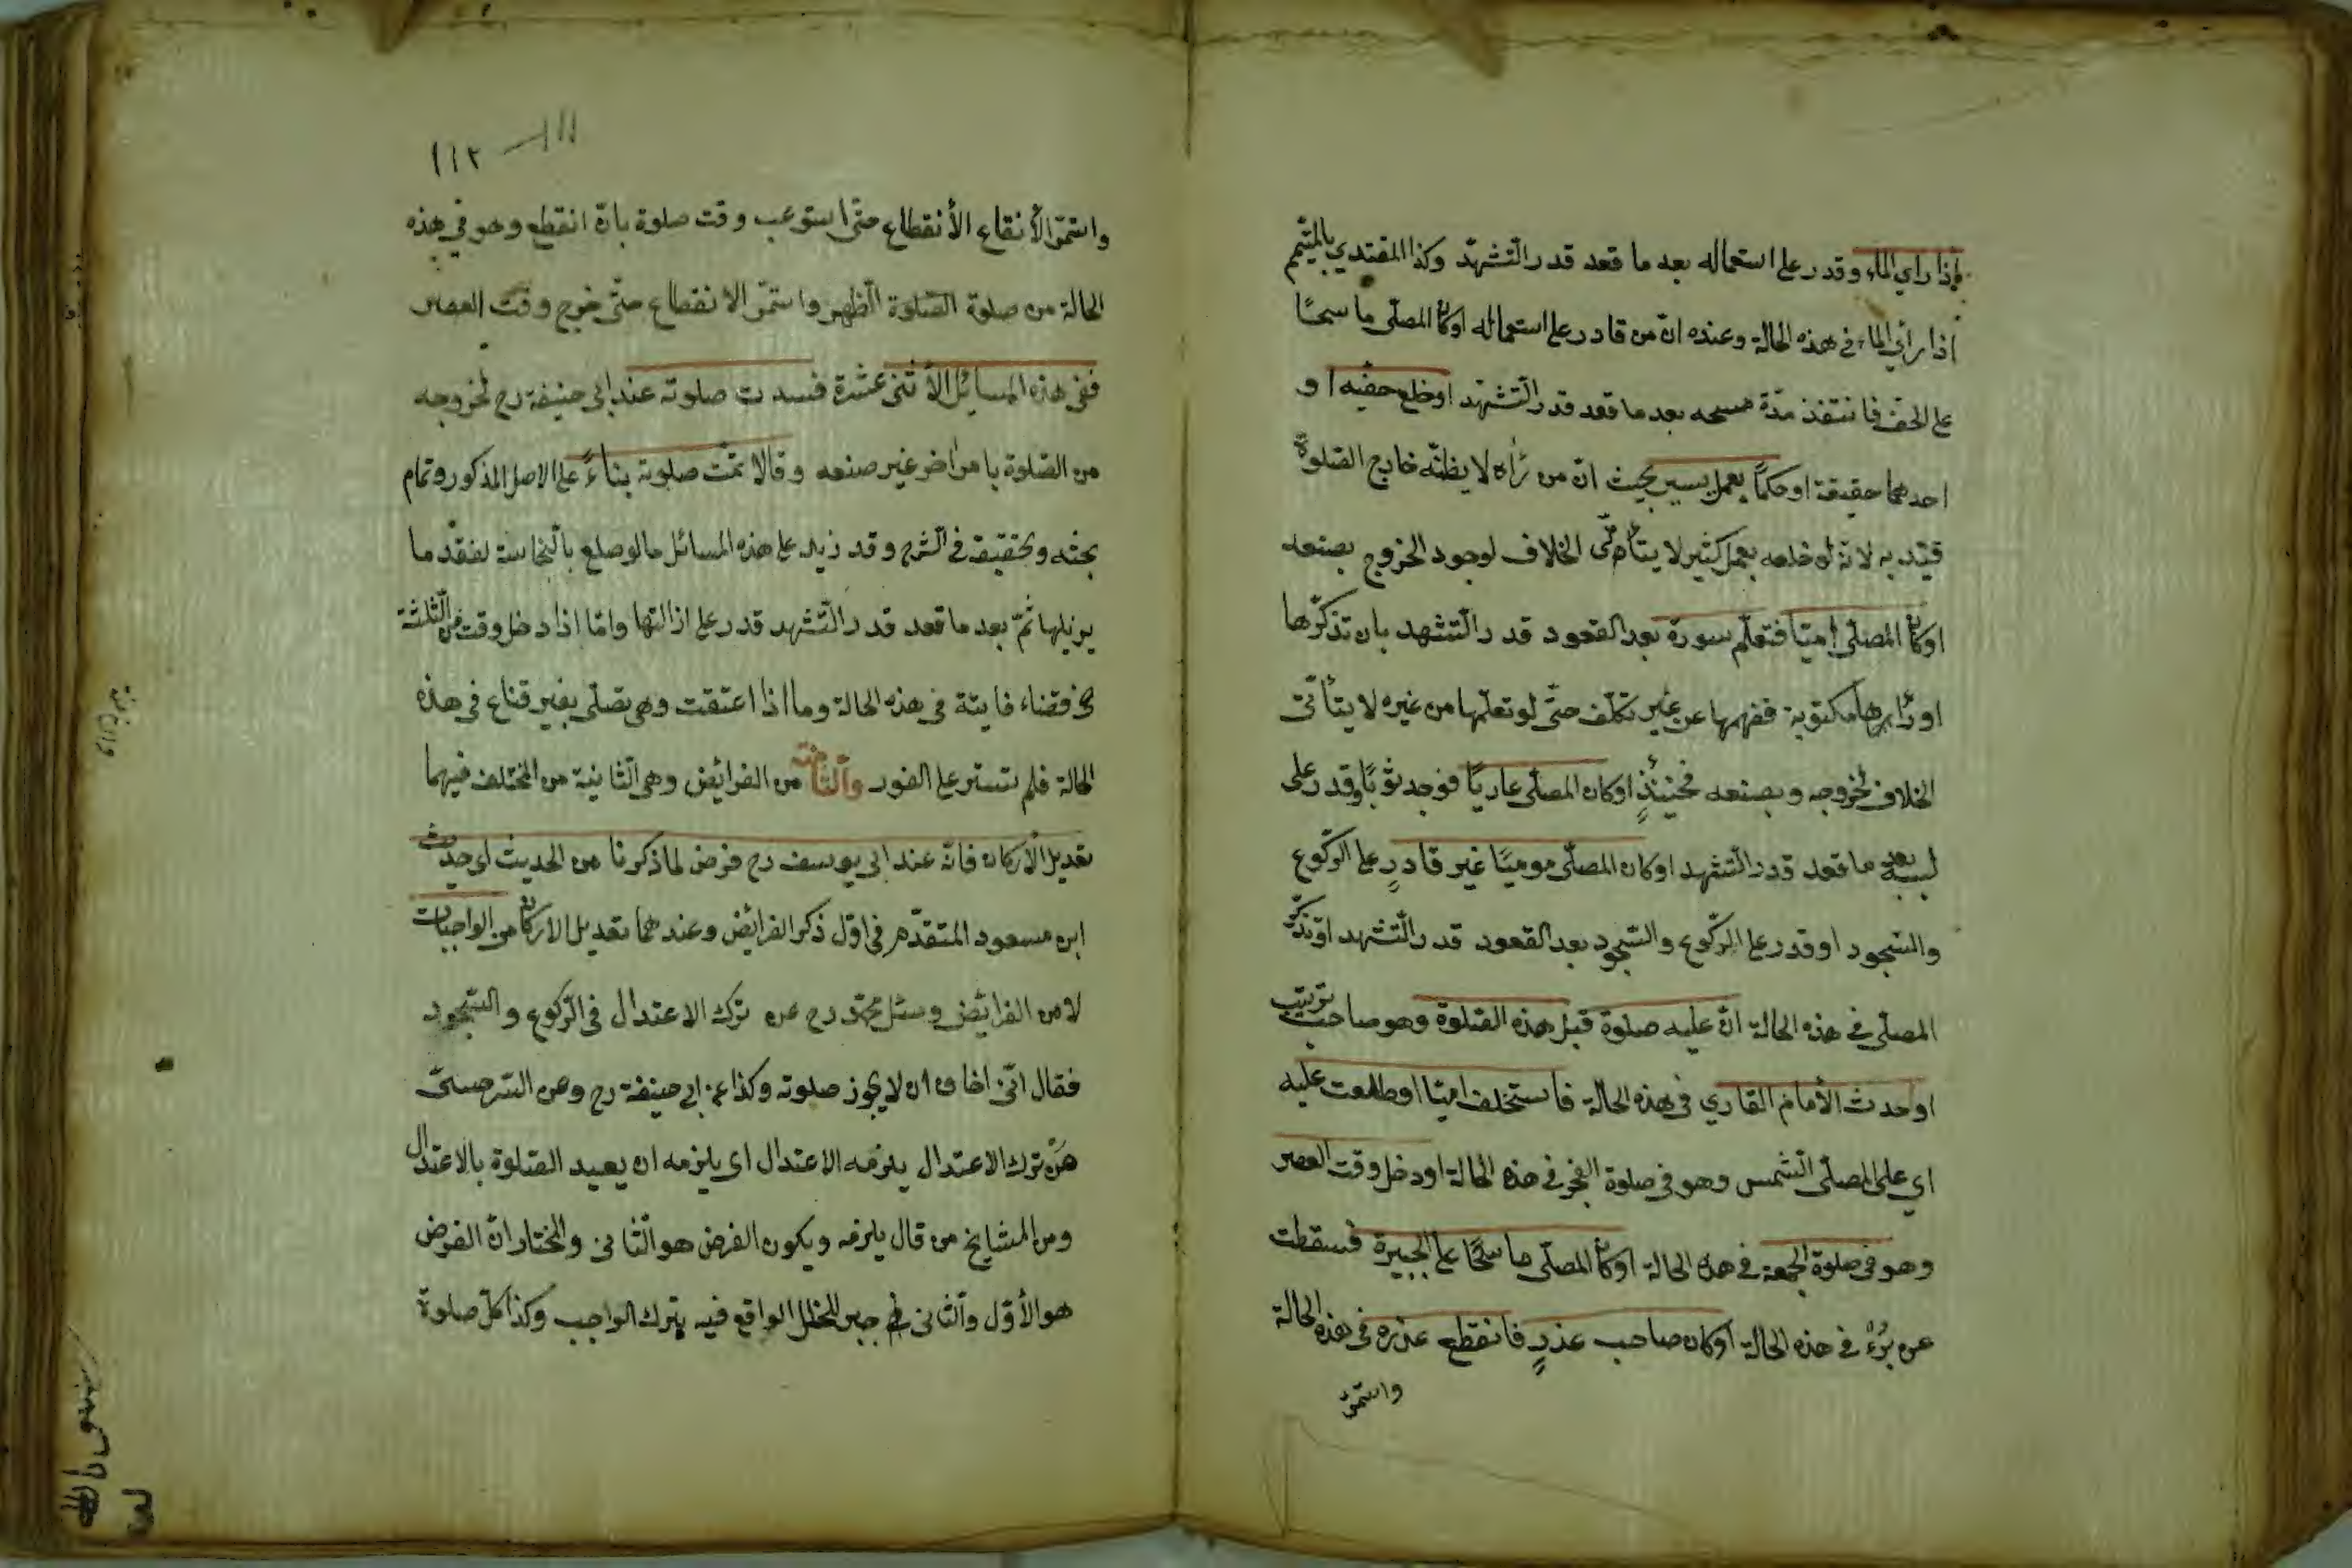 فإذا راي الماء وقدر على استعماله بعد ما قعد قدر التّشهّد وكذا المقتدي بالمتيمم
اذا رأى الماء في هذه الحالة وعنده انّ من قادر على استعماله اوكان المصلّى ماسحًا
على الخف فانتفذ مدّة مسحه بعد ما قعد قدر التّشهّد اوخلع خفّيه او
احدهما حقيقة او حكمًا بعمل يسير بحيث انّ من رأه لا يظنّه خارج الصّلوة
قيّد به لانّه لو خلعه بعمل كثير لا يتأتّى الخلاف لوجود الخروج بصنعه
اوكان المصلّى اميّا فتعلّم سورة بعد القعود قدر التّشهد بان تذكّرها
او رأىها مكتوبة ففهمها عن غير تكلّف حتّى لو تعلّمها من غيره لا يتأتّى
الخلاف لخروجه وبصنعه فحينئذٍ اوكان المصلّى عاريًا فوجد ثوبًا وقدر على
لبسه بعد ما قعد قدر التّشهد اوكان المصلّى موميًا غير قادرٍ على الرّكوع
والسّجود او قدر على الرّكوع والسّجود بعد القعود قدر التّشهد او تذكّر
المصلّى في هذه الحالة انّ عليه صلوة قبل هذه الصّلوة وهو صاحب ترتيب
اوحدث الأمام القاري في هذه الحالة فاستخلف اميّا اوطلعت عليه
اي على المصلّى الشّمس وهو في صلوة الفجر في هذه الحالة اودخل وقت العصر
وهو في صلوة الجمعة في هذه الحالة اوكان المصلّى ماسحًا على الجبيرة فسقطت
عن بُرْءٍ في هذه الحالة اوكان صاحب عذرٍ فانقطع عذره في هذه الحالة
واستمرّ
١١١
١١٢
واستمرّ الأنقاع الأنقطاع حتّى استوعب وقت صلوة بانّ انقطع وهو في هذه
الحالة من صلوة الصّلوة الظّهر واستمرّ الانقطاع حتّى خرج وقت العصر
ففي هذه المسائل الأثنى عشرة فسدت صلوته عند ابى حنيفة رح لخروجه
من الصّلوة بامر اخر غير صنعه وقالا تمّت صلوته بناءً على الاصل المذكور وتمام
بحثه وتحقيقه في الشّرح وقد زيد على هذه المسائل ما لو صلع بالنّجاسة لفقد ما
يزيلها ثمّ بعد ما قعد قدر التّشهد قدر على ازالتها وامّا اذا دخل وقت من الثّلثة
في قضاء فايتة في هذه الحالة وما اذا اعتقت وهى تصلّى بغير قناع في هذه
الحالة فلم تستتر على الفور والثّامنة من الفرائض وهى الثّانية من المختلف فيهما
تعديل الأركان فانّه عند ابى يوسف رح فرض لما ذكرنا من الحديث اى حديث
ابن مسعود المتقدّم في اوّل ذكر الفرائض وعندهما تعديل الاركان من الواجبات
لا من الفرائض وسئل محمّد رح عن ترك الاعتدال في الرّكوع والسّجود
فقال انّى اخاف ان لا يجوز صلوته وكذا عن ابى حنيفة رح وعن السّرخسىّ
من ترك الاعتدال يلزمه الاعتدال اى يلزمه ان يعيد الصّلوة بالاعتدال
ومن المشايخ من قال يلزمه ويكون الفرض هو الثّانى والمختار انّ الفرض
هو الأوّل والثّانى جبر للخلل الواقع فيه بترك الواجب وكذا كلّ صلوة